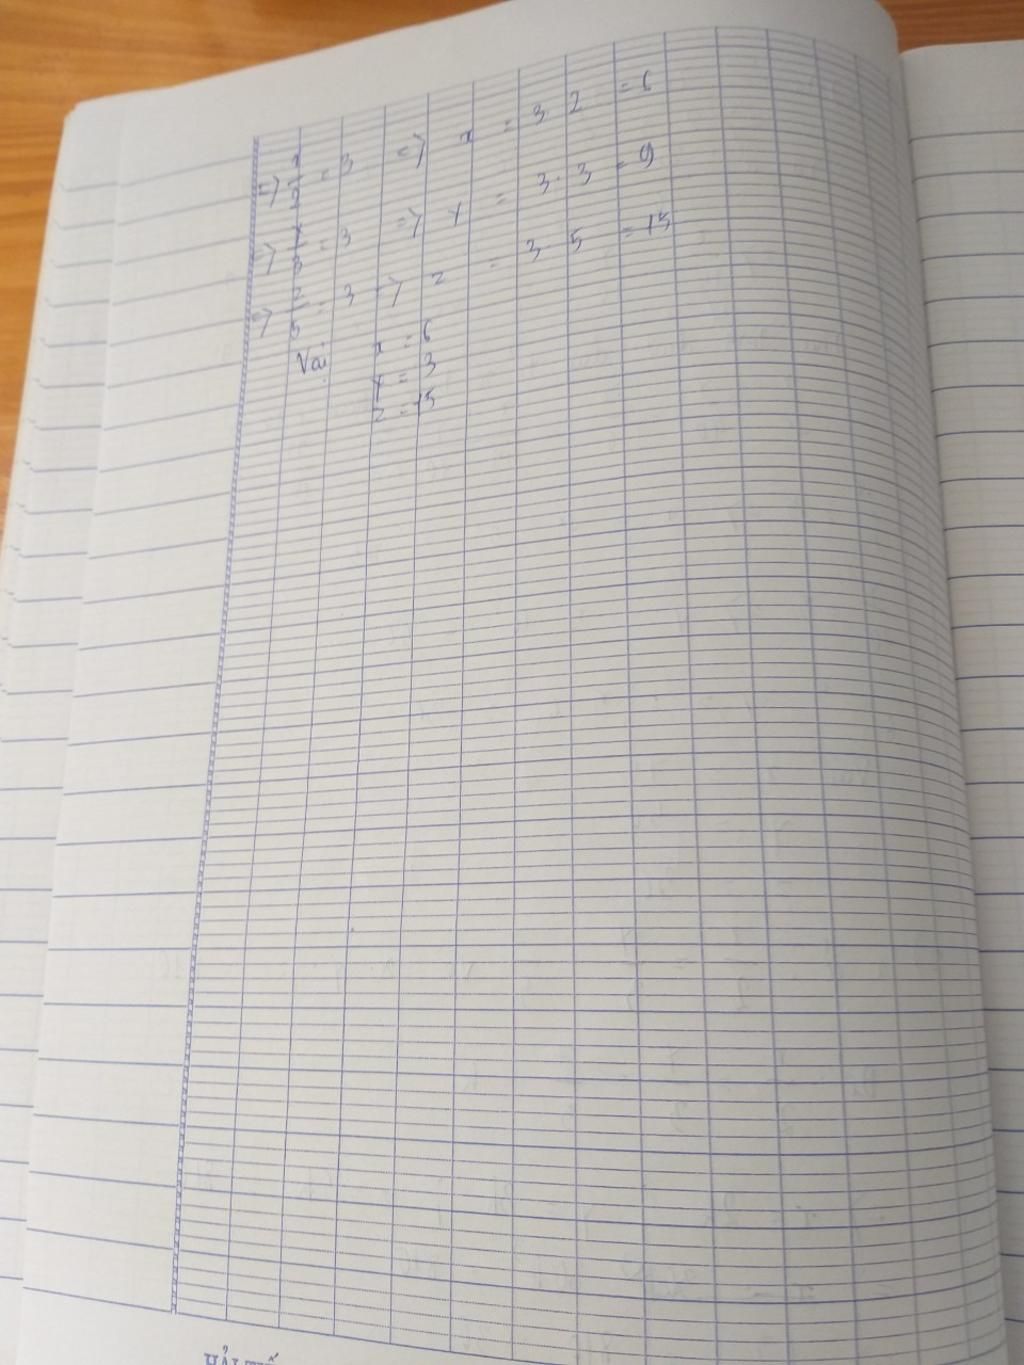 => x/2 = 3 => x = 3. 2 = 6
=> y/3 = 3 => y = 3. 3 = 9
=> z/5 = 3 => z = 3. 5 = 15
Vậi x = 6
y = 3
z = 15